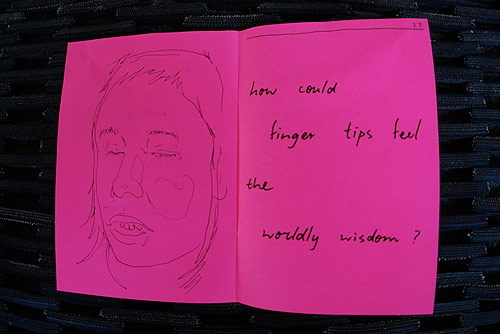 how could
finger tips feel
the
worldly wisdom ?